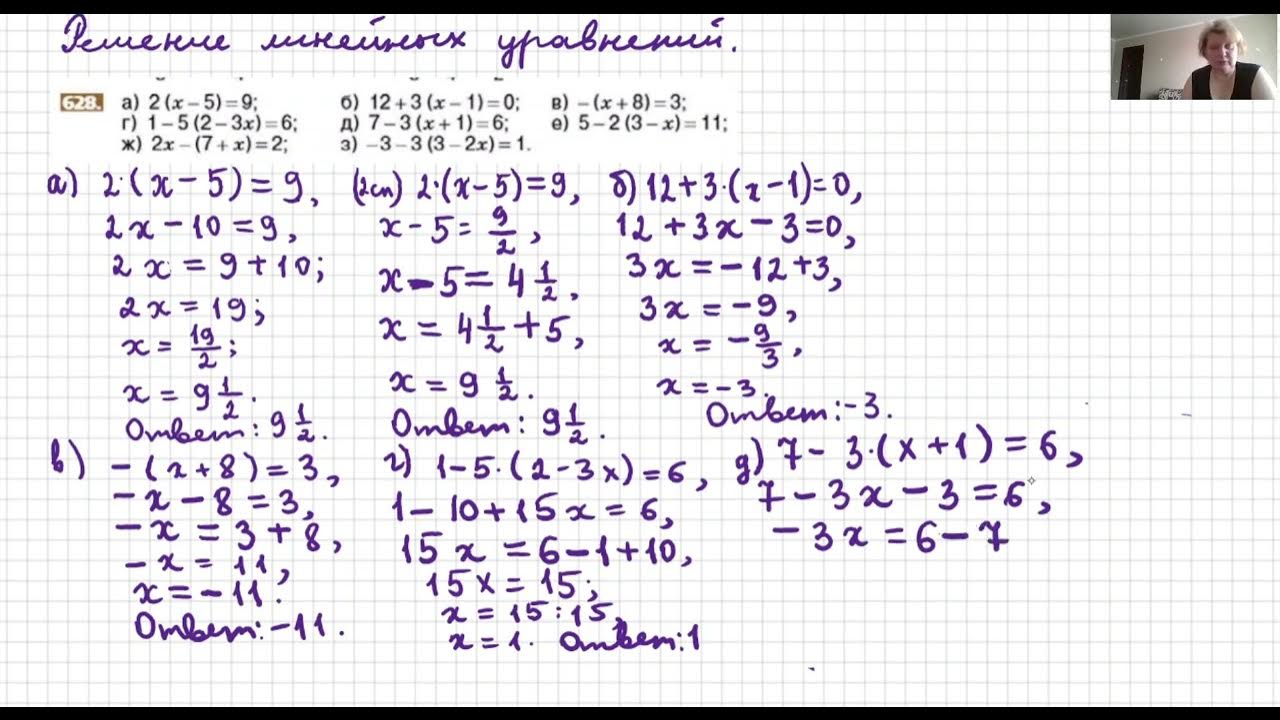 Решение линейных уравнений.
628. а) 2(x – 5) = 9; б) 12 + 3(x – 1) = 0; в) –(x + 8) = 3;
г) 1 – 5(2 – 3x) = 6; д) 7 – 3(x + 1) = 6; е) 5 – 2(3 – x) = 11;
ж) 2x – (7 + x) = 2; з) –3 – 3(3 – 2x) = 1.
а) 2·(x – 5) = 9,
2x – 10 = 9,
2x = 9 + 10;
2x = 19;
x = 19/2;
x = 9 1/2.
Ответ: 9 1/2.
(2сп) 2·(x – 5) = 9,
x – 5 = 9/2,
x – 5 = 4 1/2.
x = 4 1/2 + 5,
x = 9 1/2.
Ответ: 9 1/2.
б) 12 + 3·(x – 1) = 0,
12 + 3x – 3 = 0,
3x = –12 + 3,
3x = –9,
x = –9/3,
x = –3.
Ответ: –3.
в) –(x + 8) = 3,
–x – 8 = 3,
–x = 3 + 8,
–x = 11,
x = –11.
Ответ: –11.
г) 1 – 5·(2 – 3x) = 6,
1 – 10 + 15x = 6,
15x = 6 – 1 + 10,
15x = 15;
x = 15 : 15,
x = 1. Ответ: 1
д) 7 – 3·(x + 1) = 6,
7 – 3x – 3 = 6,
–3x = 6 – 7